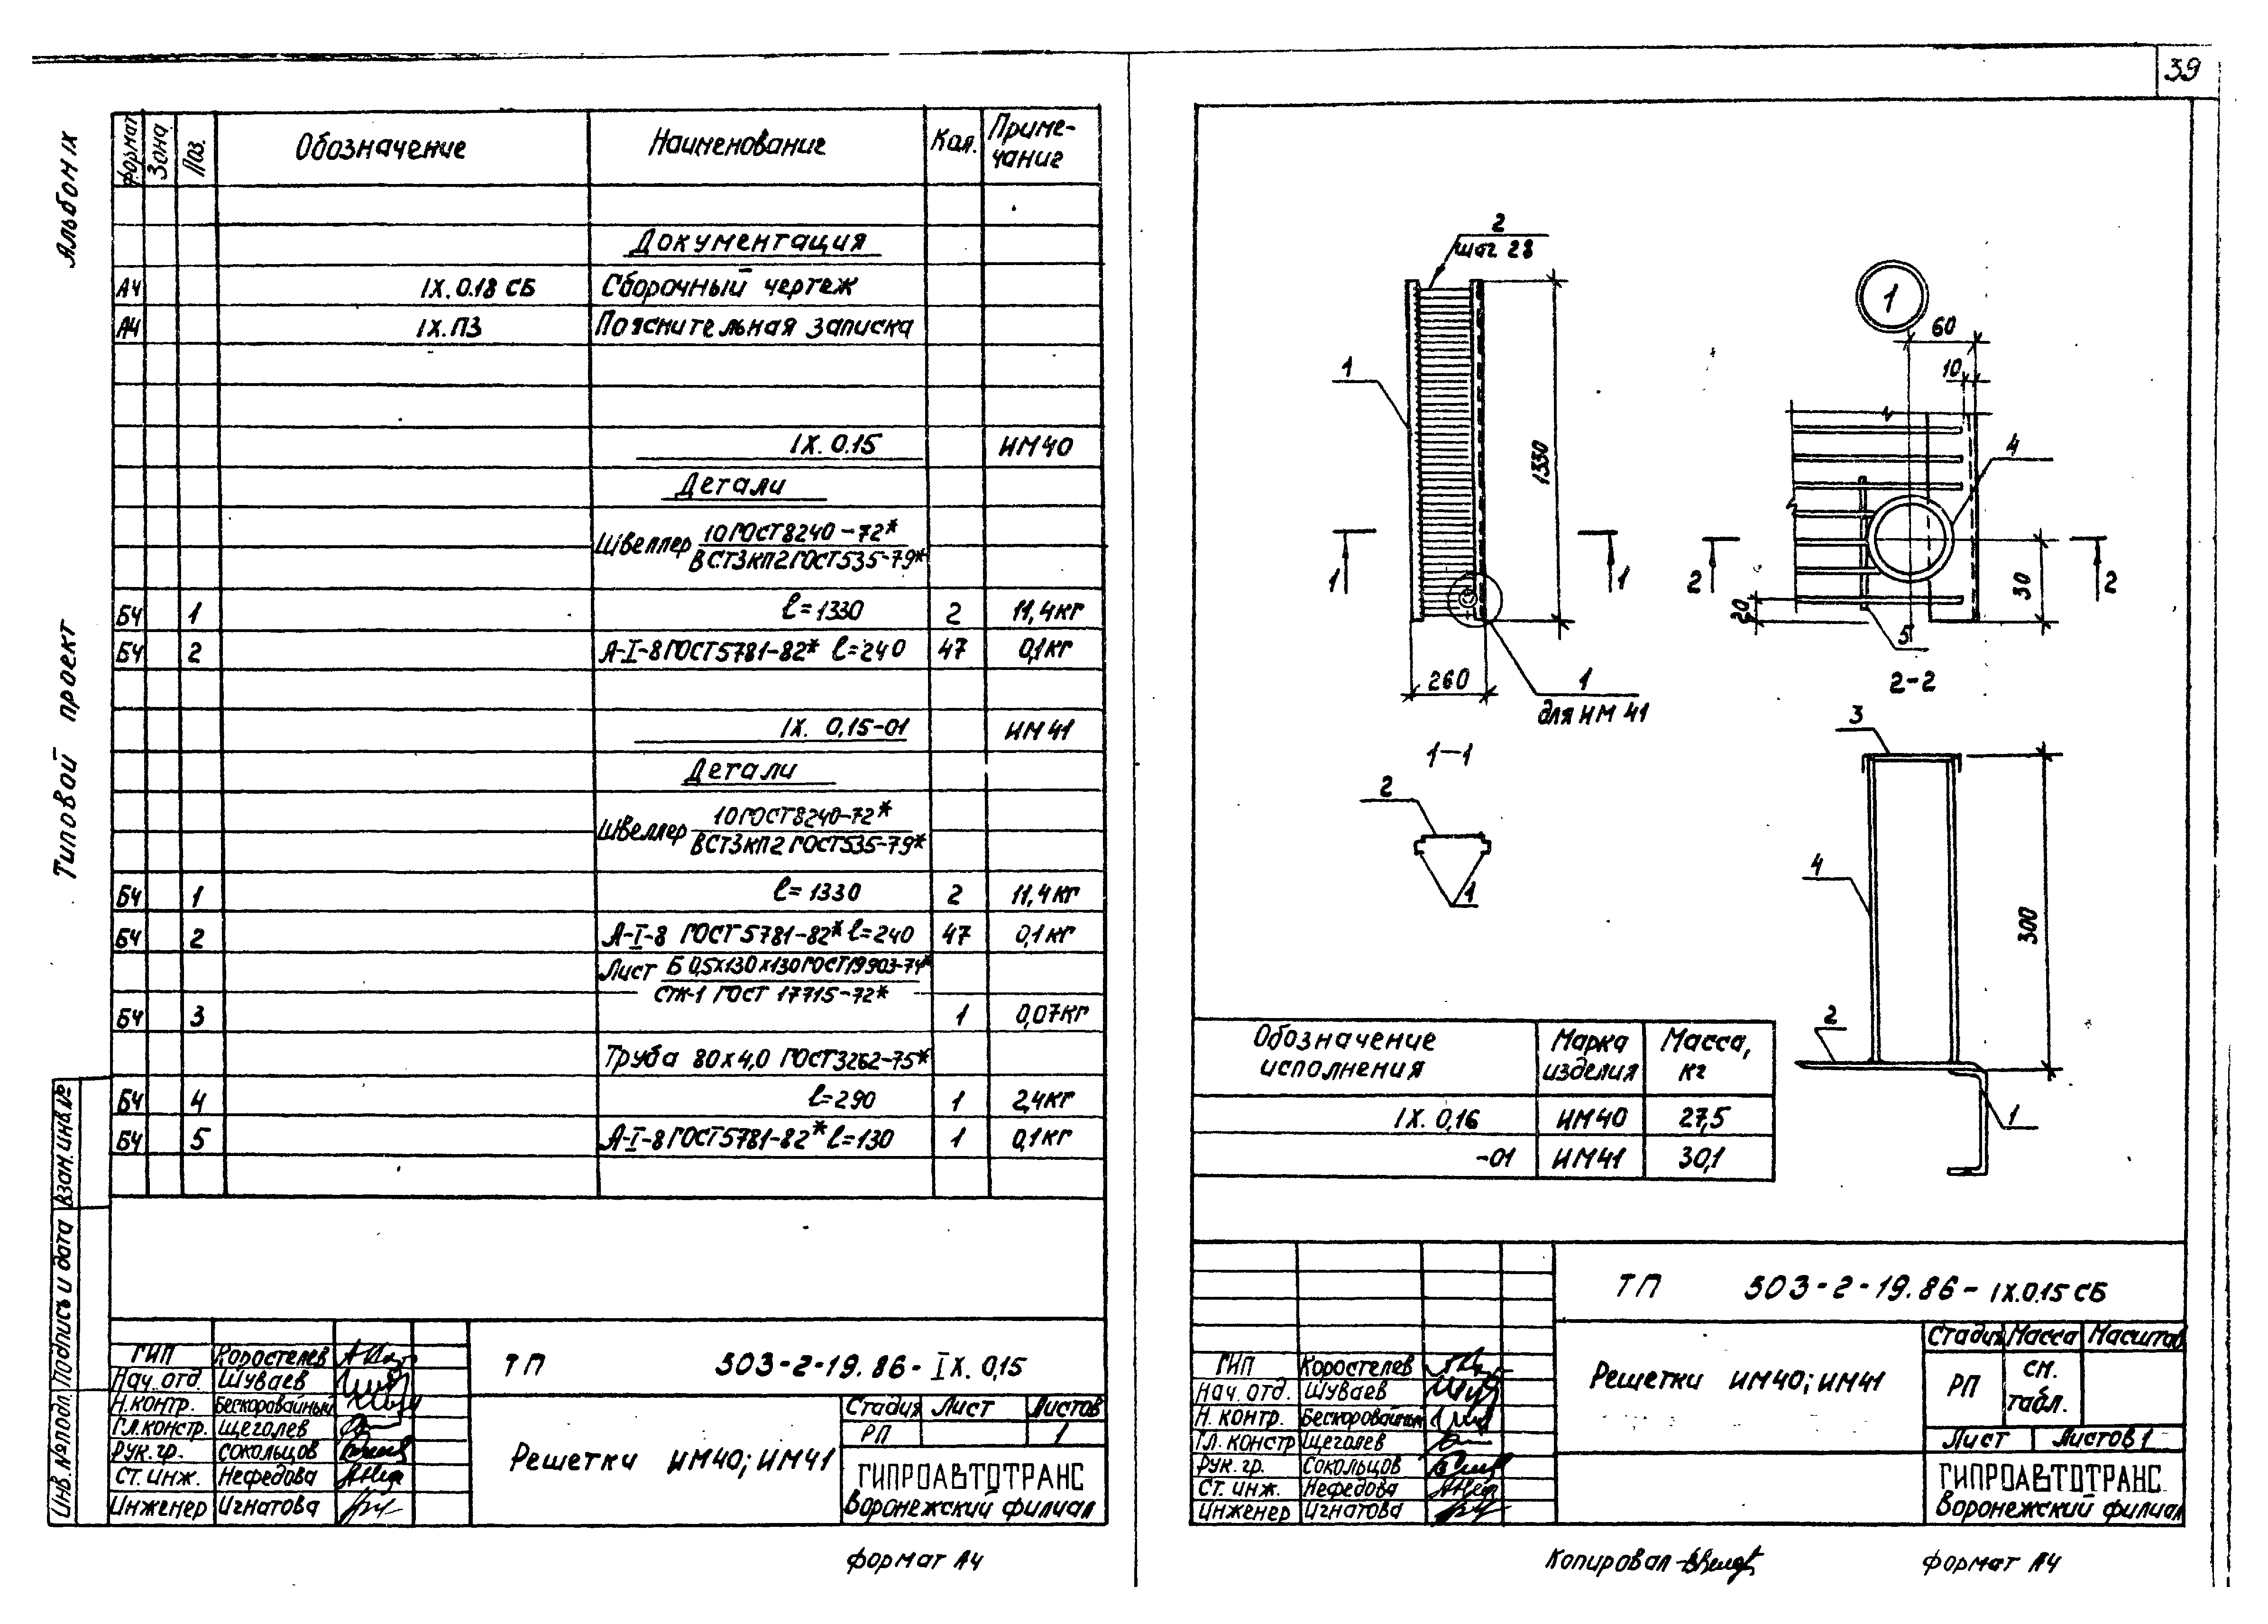 39
Альбом IX
Типовой проект
Инв. № подл. Подпись и дата Взам. инв. №
Формат Зона Поз. Обозначение Наименование Кол. Приме-
чание
Документация
А4 IX. 0.18 СБ Сборочный чертеж
А4 IX. ПЗ Пояснительная записка
IX. 0.15 ИМ40
Детали
Швеллер 10 ГОСТ 8240-72*
В СТ3 КП2 ГОСТ 535-79*
БЧ 1 ℓ=1330 2 11,4кг
БЧ 2 А-I-8 ГОСТ 5781-82* ℓ=240 47 0,1кг
IX. 0,15-01 ИМ41
Детали
Швеллер 10 ГОСТ 8240-72*
В СТ3 КП2 ГОСТ 535-79*
БЧ 1 ℓ=1330 2 11,4кг
БЧ 2 А-I-8 ГОСТ 5781-82* ℓ=240 47 0,1кг
Лист Б 0,5х130х130 ГОСТ 19903-74*
СТК-1 ГОСТ 17715-72*
БЧ 3 1 0,07кг
Труба 80х4,0 ГОСТ 3262-75*
БЧ 4 ℓ=290 1 2,4кг
БЧ 5 А-I-8 ГОСТ 5781-82* ℓ=130 1 0,1кг
ГИП Коростелев
Нач. отд. Шуваев
Н. контр. Бескоровайный
Гл. констр. Щеголев
Рук. гр. Сокольцов
Ст. инж. Нефедова
Инженер Игнатова
ТП 303-2-19.86-IX. 0,15
Решетки ИМ40; ИМ41
Стадия Лист Листов
РП 1
ГИПРОАВТОТРАНС
Воронежский филиал
Формат А4
2
шаг 28
1
1330
1 1
260
1
для ИМ 41
1-1
2
1
1
60
10
4
2 2
20
30
5
2-2
3
4
300
2
1
Обозначение
исполнения Марка
изделия Масса,
кг
IX. 0,16 ИМ40 27,5
-01 ИМ41 30,1
ТП 303-2-19.86-IX.0.15 СБ
ГИП Коростелев
Нач. отд. Шуваев
Н. контр. Бескоровайный
Гл. констр Щеголев
Рук. гр. Сокольцов
Ст. инж. Нефедова
Инженер Игнатова
Решетки ИМ40; ИМ41
Стадия Масса Масштаб
РП см.
табл.
Лист Листов 1
ГИПРОАВТОТРАНС
Воронежский филиал
Копировал
Формат А4